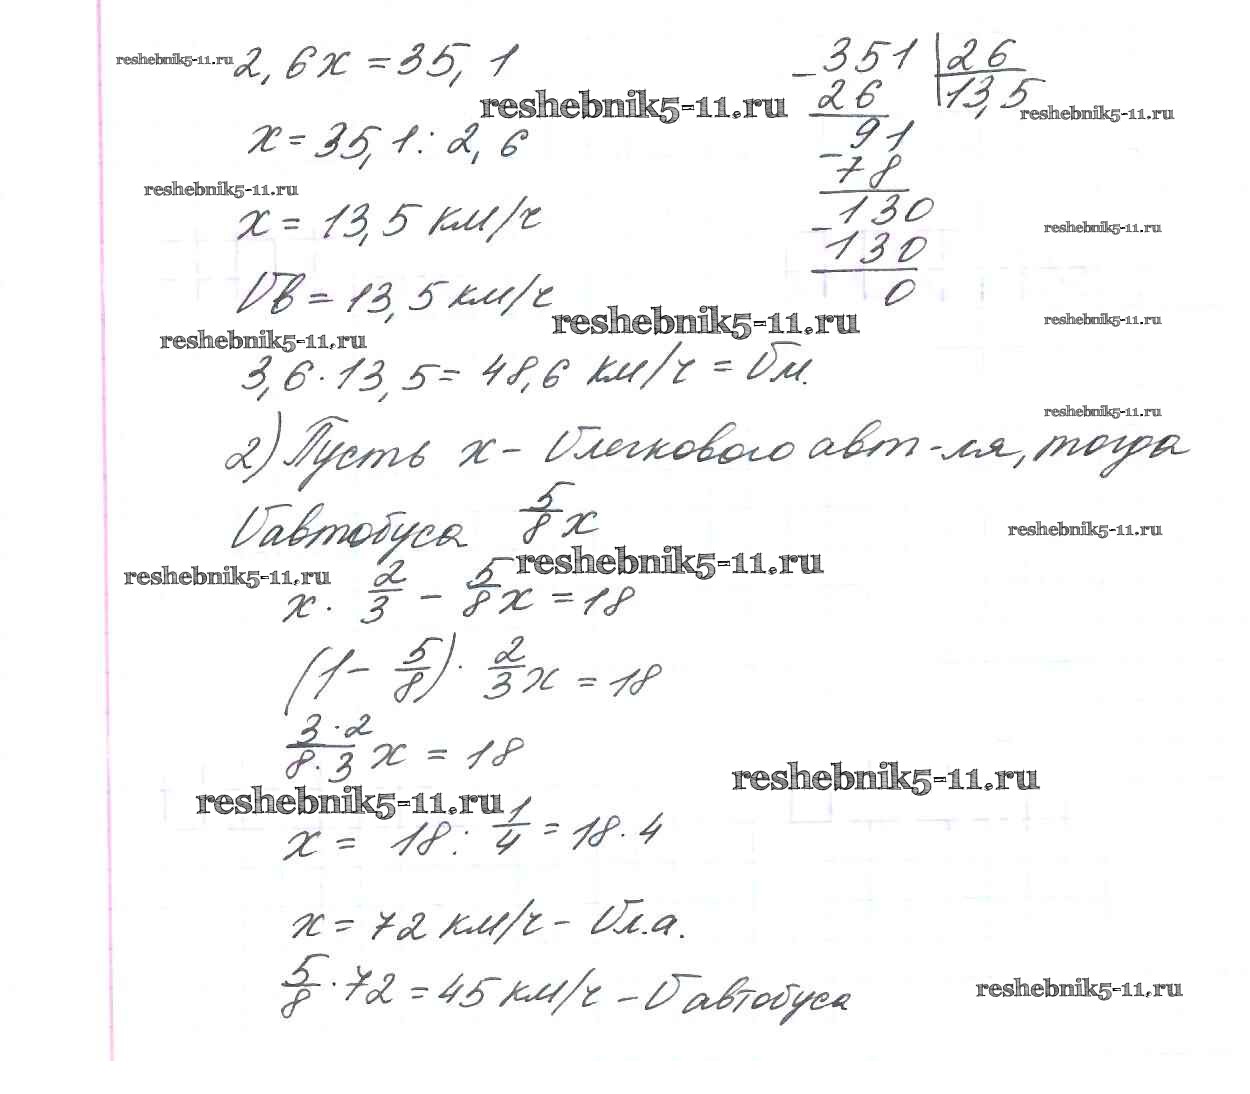 reshebnik5-11.ru
2,6x = 35,1
351 | 26
reshebnik5-11.ru
26
13,5
reshebnik5-11.ru
91
x = 35,1 : 2,6
78
reshebnik5-11.ru
130
x = 13,5 км/ч
reshebnik5-11.ru
130
0
Vв = 13,5 км/ч
reshebnik5-11.ru
reshebnik5-11.ru
reshebnik5-11.ru
3,6 · 13,5 = 48,6 км/ч = Vм.
reshebnik5-11.ru
2) Пусть x - Vлегкового авт-ля, тогда
Vавтобуса 5/8 x
reshebnik5-11.ru
reshebnik5-11.ru
reshebnik5-11.ru
x · 2/3 - 5/8 x = 18
(1 - 5/8) · 2/3 x = 18
3·2/8·3 x = 18
reshebnik5-11.ru
reshebnik5-11.ru
x = 18 : 1/4 = 18 · 4
x = 72 км/ч - Vл.а.
5/8 · 72 = 45 км/ч - Vавтобуса
reshebnik5-11.ru